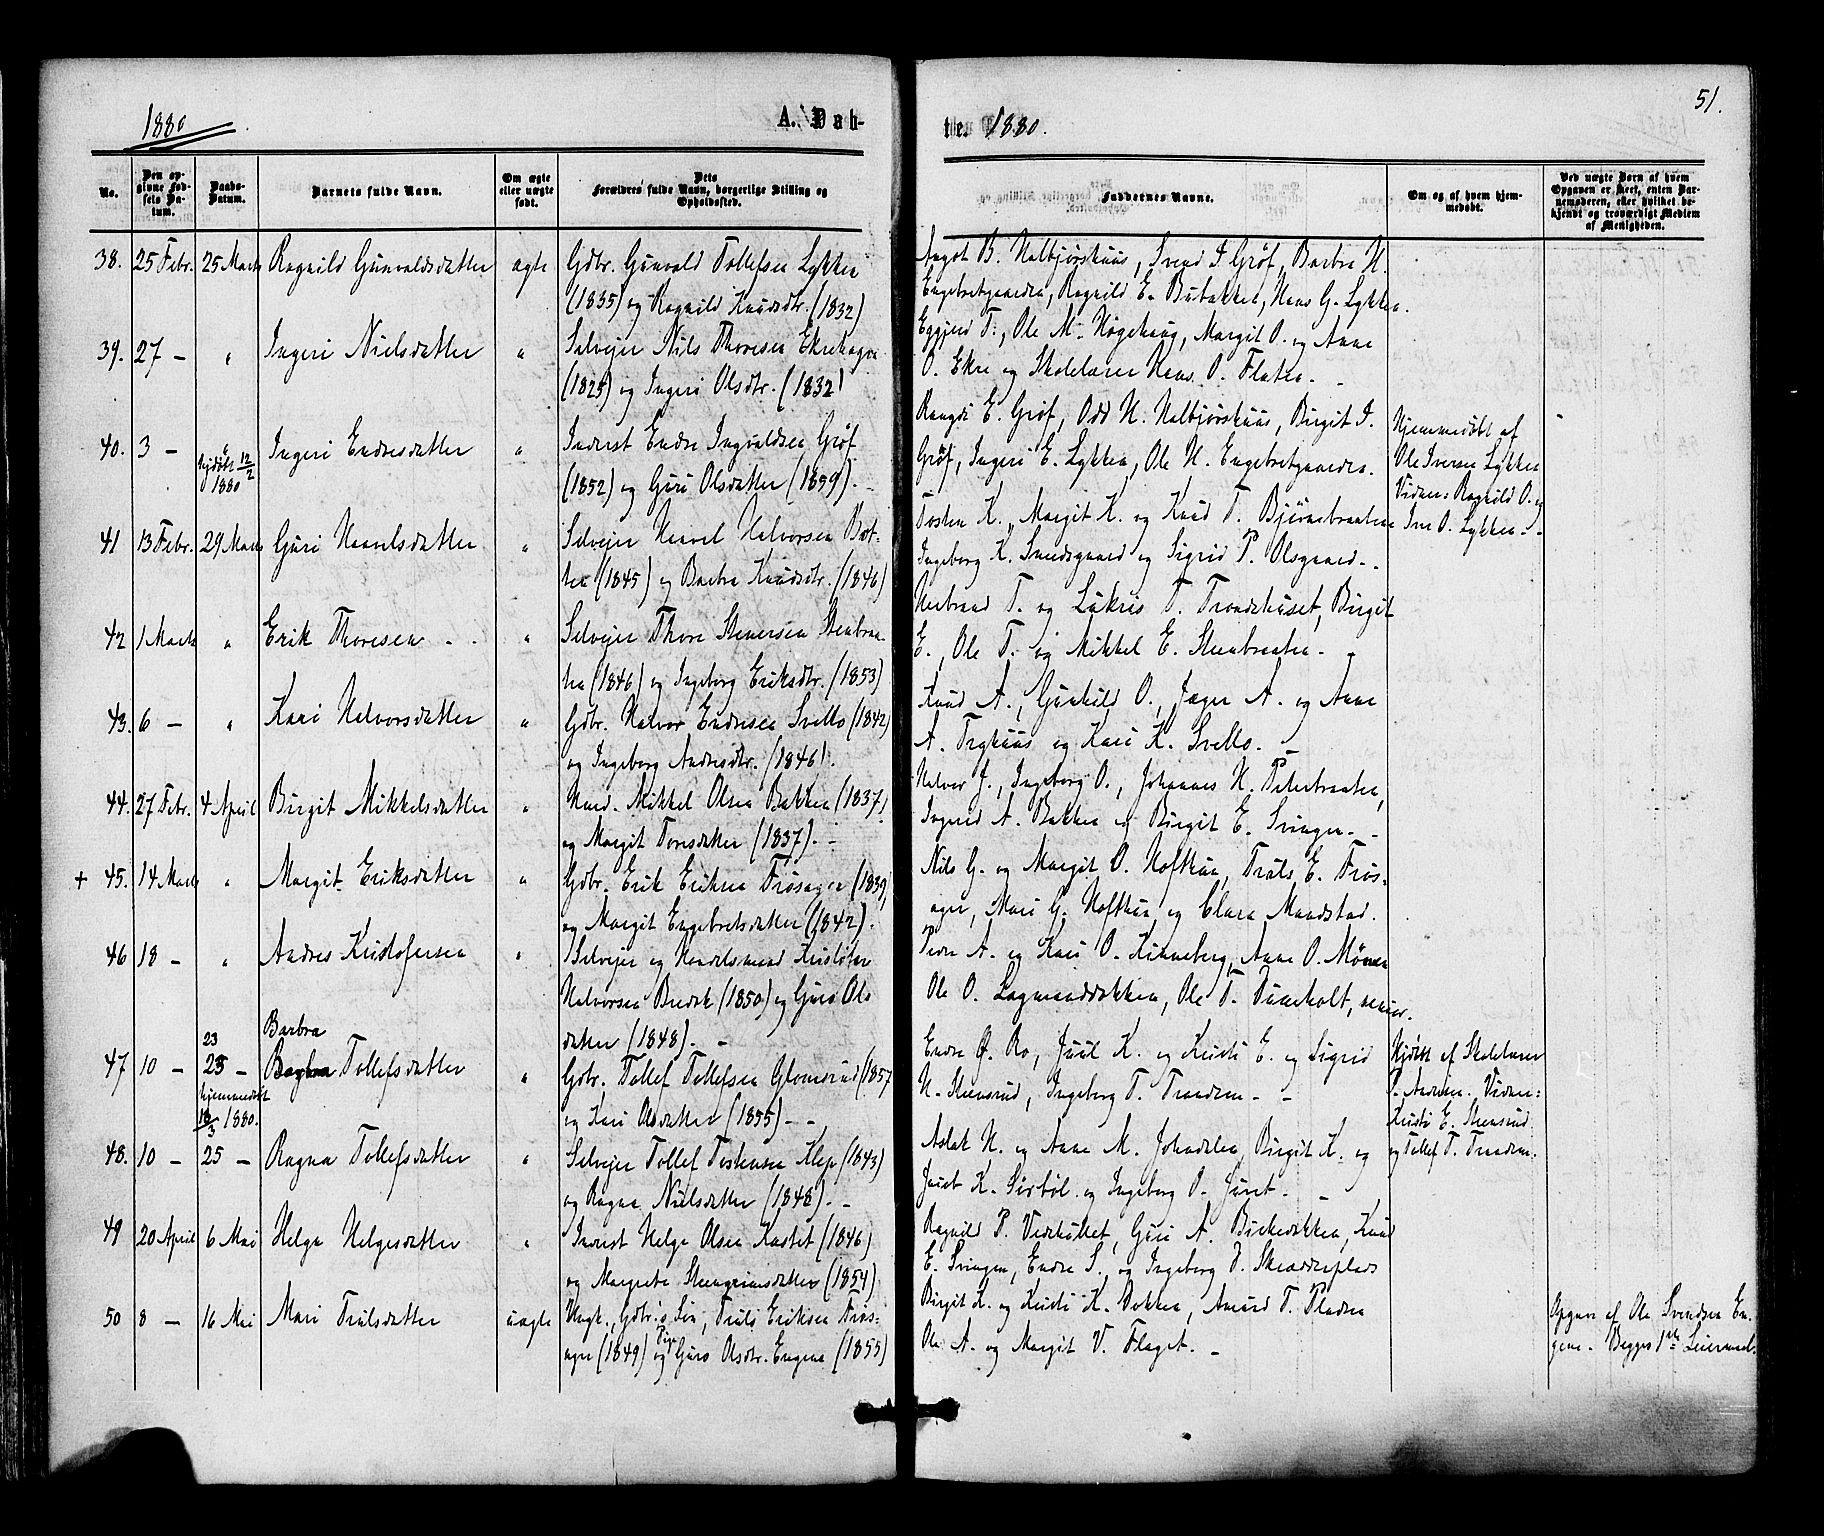 1880
A. Dab-
te. 1880.
51.
No.
Den op-
givne Fød-
sels Da-
tum.
Daabs-
Datum.
Barnets fulde Navn.
Om ægte
eller uægte
født.
Dets
Forældres fulde Navn, borgerlige Stilling og
Opholdssted.
Faddernes Navne.
Om og af hvem hjem-
medøbt.
Ved uægte Børn af hvem
Opgaven er skeet, enten Bar-
nemoderen, eller hvilket be-
kjendt og troværdigt Medlem
af Menigheden.
38. 25 Febr. 25 Marts Ragnild Gunvaldsdatter ægte Gdbr. Gunvald Tollefsen Lykken
(1835) og Ragnild Knudsdtr. (1832)
Angot B. Halbjørshuus, Svend I Grøf, Barbra H.
Engebretgaarden, Ragnild E. Bubakken, Hans G. Lykken.
39. 27 — " Ingeri Nielsdatter " Selvejer Nils Thoresen Ekrehagen
(1825) og Ingeri Olsdtr. (1832)
Eggjerd T., Ole M. Høgehaug, Margit O. og Anne
O. Ekre og Skolelærer Hans O. Flaten.
40. 3 — " hjdøbt 12/2 1880 Ingeri Endresdatter " Inderst Endre Ingvaldsen Grøf
(1852) og Guri Olsdatter (1859).
Rangdi E. Grøf, Odd H. Halbjørshuus, Birgit I.
Grøf, Ingeri E. Lykken, Ole H. Engebretgaarden.
Hjemmedøbt af
Ole Iversen Lykken
Vidner: Ragnild O. og
Iver O. Lykken.
41 13 Febr. 29 Marts Guri Haavelsdatter " Selvejer Haavel Halvorsen Bot-
ten (1845) og Barbra Knudsdtr. (1846)
Tosten K., Margit K. og Knud T. Bjørnebraaten
Ingeborg K. Svendsgaard og Sigrid P. Olsgaard.
42 1 Marts " Erik Thoresen " Selvejer Thore Stenersen Stenbraa-
ten (1846) og Ingeborg Eriksdtr. (1853)
Herbrand T. og Lukris T. Trondehuset, Birgit
E., Ole T. og Mikkel E. Steenbraaten.
43. 6 — " Kari Halvorsdatter " Gdbr. Halvor Endresen Svello (1842)
og Ingeborg Andresdtr. (1846).
Knud A., Gunhild O., Jæger A. og Anne
A. Tryhuus og Kari K. Svello.
44. 27 Febr. 4 April Birgit Mikkelsdatter " Huusd. Mikkel Olsen Bakken (1837)
og Margit Toresdatter (1837).
Halvor J., Ingeborg O., Johannes H. Petersbraaten,
Ingrid A. Bakken og Birgit E. Svingen.
+ 45. 14 Marts " Margit Eriksdatter " Gdbr. Erik Eriksen Frøsager (1839)
og Margit Engebretsdatter (1842).
Nils G. og Margit O. Hoftuun, Truls E. Frøs-
ager, Mari G. Hoftuun og Clara Maadstad.
46 18 — " Andres Kristofersen " Selvejer og Handelsmand Kristofer
Halvorsen Bredek (1850) og Guro Ols
datter (1848).
Peder A. og Kari O. Kinneberg, Anne O. Moen
Ole O. Lagmanddokken, Ole T. Tuneholt, senior.
47 10 — 23 25 — hjemmedøbt 16/3 1880. Barbra Tollefsdatter " Gdbr. Tollef Tollefsen Glomsrud (1857
og Kari Olsdatter (1855)
Endre O. Ro, Juul K. og Kristi E. og Sigrid
H. Steensrud, Ingeborg T. Trondrud
Hjdøbt af Skolelærer
P. Andersen. Vidner:
Kristi E. Steensrud
og Tollef T. Trondrud.
48. 10 — 25 — Ragna Tollefsdatter " Selvejer Tollef Tostensen Klep (1843)
og Ragna Nielsdatter (1848).
Aslak H. og Anne M. Johndalen, Birgit K. og
Joset K. Sirbøl og Ingeborg O. Juvet.
49 20 April 6 Mai Helga Helgesdatter " Inderst Helge Olsen Kastet (1846)
og Margrete Steengrimsdatter (1854)
Ragnild P. Vedehullet, Guri A. Birkedokken, Knud
E. Svingen, Endre S. og Ingeborg O. Skrædderplads
50 8 — 16 Mai Mari Trulsdatter uægte Ungk., Gdbr.'s Søn, Truls Eriksen Frøs-
ager (1849) og Pige Guro Olsdtr. Engene (1855)
Birgit K. og Kristi K. Dokken, Amund T. Pladsen
Ole A. og Margit V. Flaget.
Opgave af Ole Svendsen En-
gene. Begges 1ste Leiermaal.